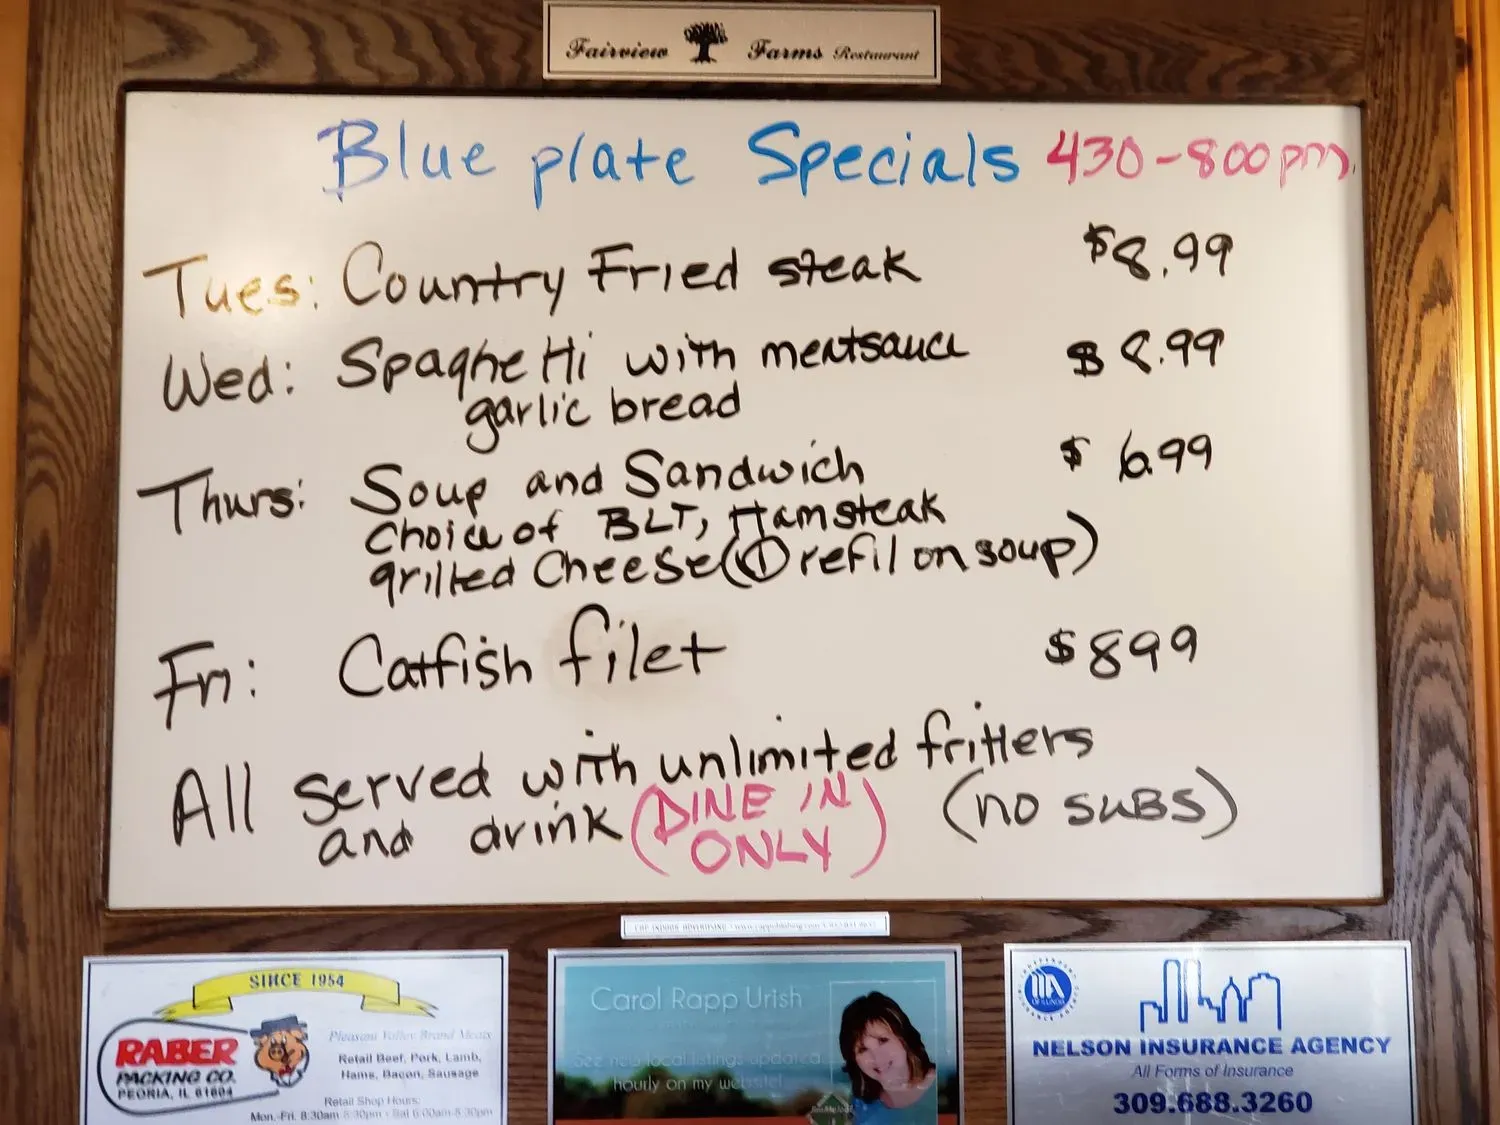 Fairview Farms Restaurant
Blue plate Specials 430-800pm.
Tues: Country Fried steak $8.99
Wed: Spaghetti with meatsauce $8.99
garlic bread
Thurs: Soup and Sandwich $6.99
choice of BLT, Hamsteak
grilled Cheese (① refil on soup)
Fri: Catfish filet $899
All served with unlimited fritters
and drink (DINE IN ONLY) (no SUBS)
SINCE 1954
RABER
PACKING CO.
PEORIA, IL 61604
Pleasant Valley Brand Meats
Retail Beef, Pork, Lamb,
Hams, Bacon, Sausage
Retail Shop Hours:
Mon.-Fri. 8:30am-5:30pm • Sat 6:00am-5:30pm
Carol Rapp Urish
See new local listings updated
hourly on my website!
OF ILLINOIS
NELSON INSURANCE AGENCY
All Forms of Insurance
309.688.3260